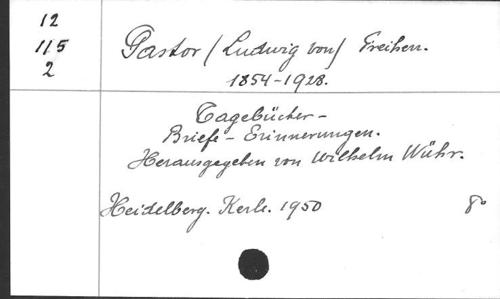 12
115
2
Pastor (Ludwig von) Freiherr.
1854-1928.
Tagebücher -
Briefe - Erinnerungen.
Herausgegeben von Wilhelm Wühr.
Heidelberg. Kerle. 1950
8º